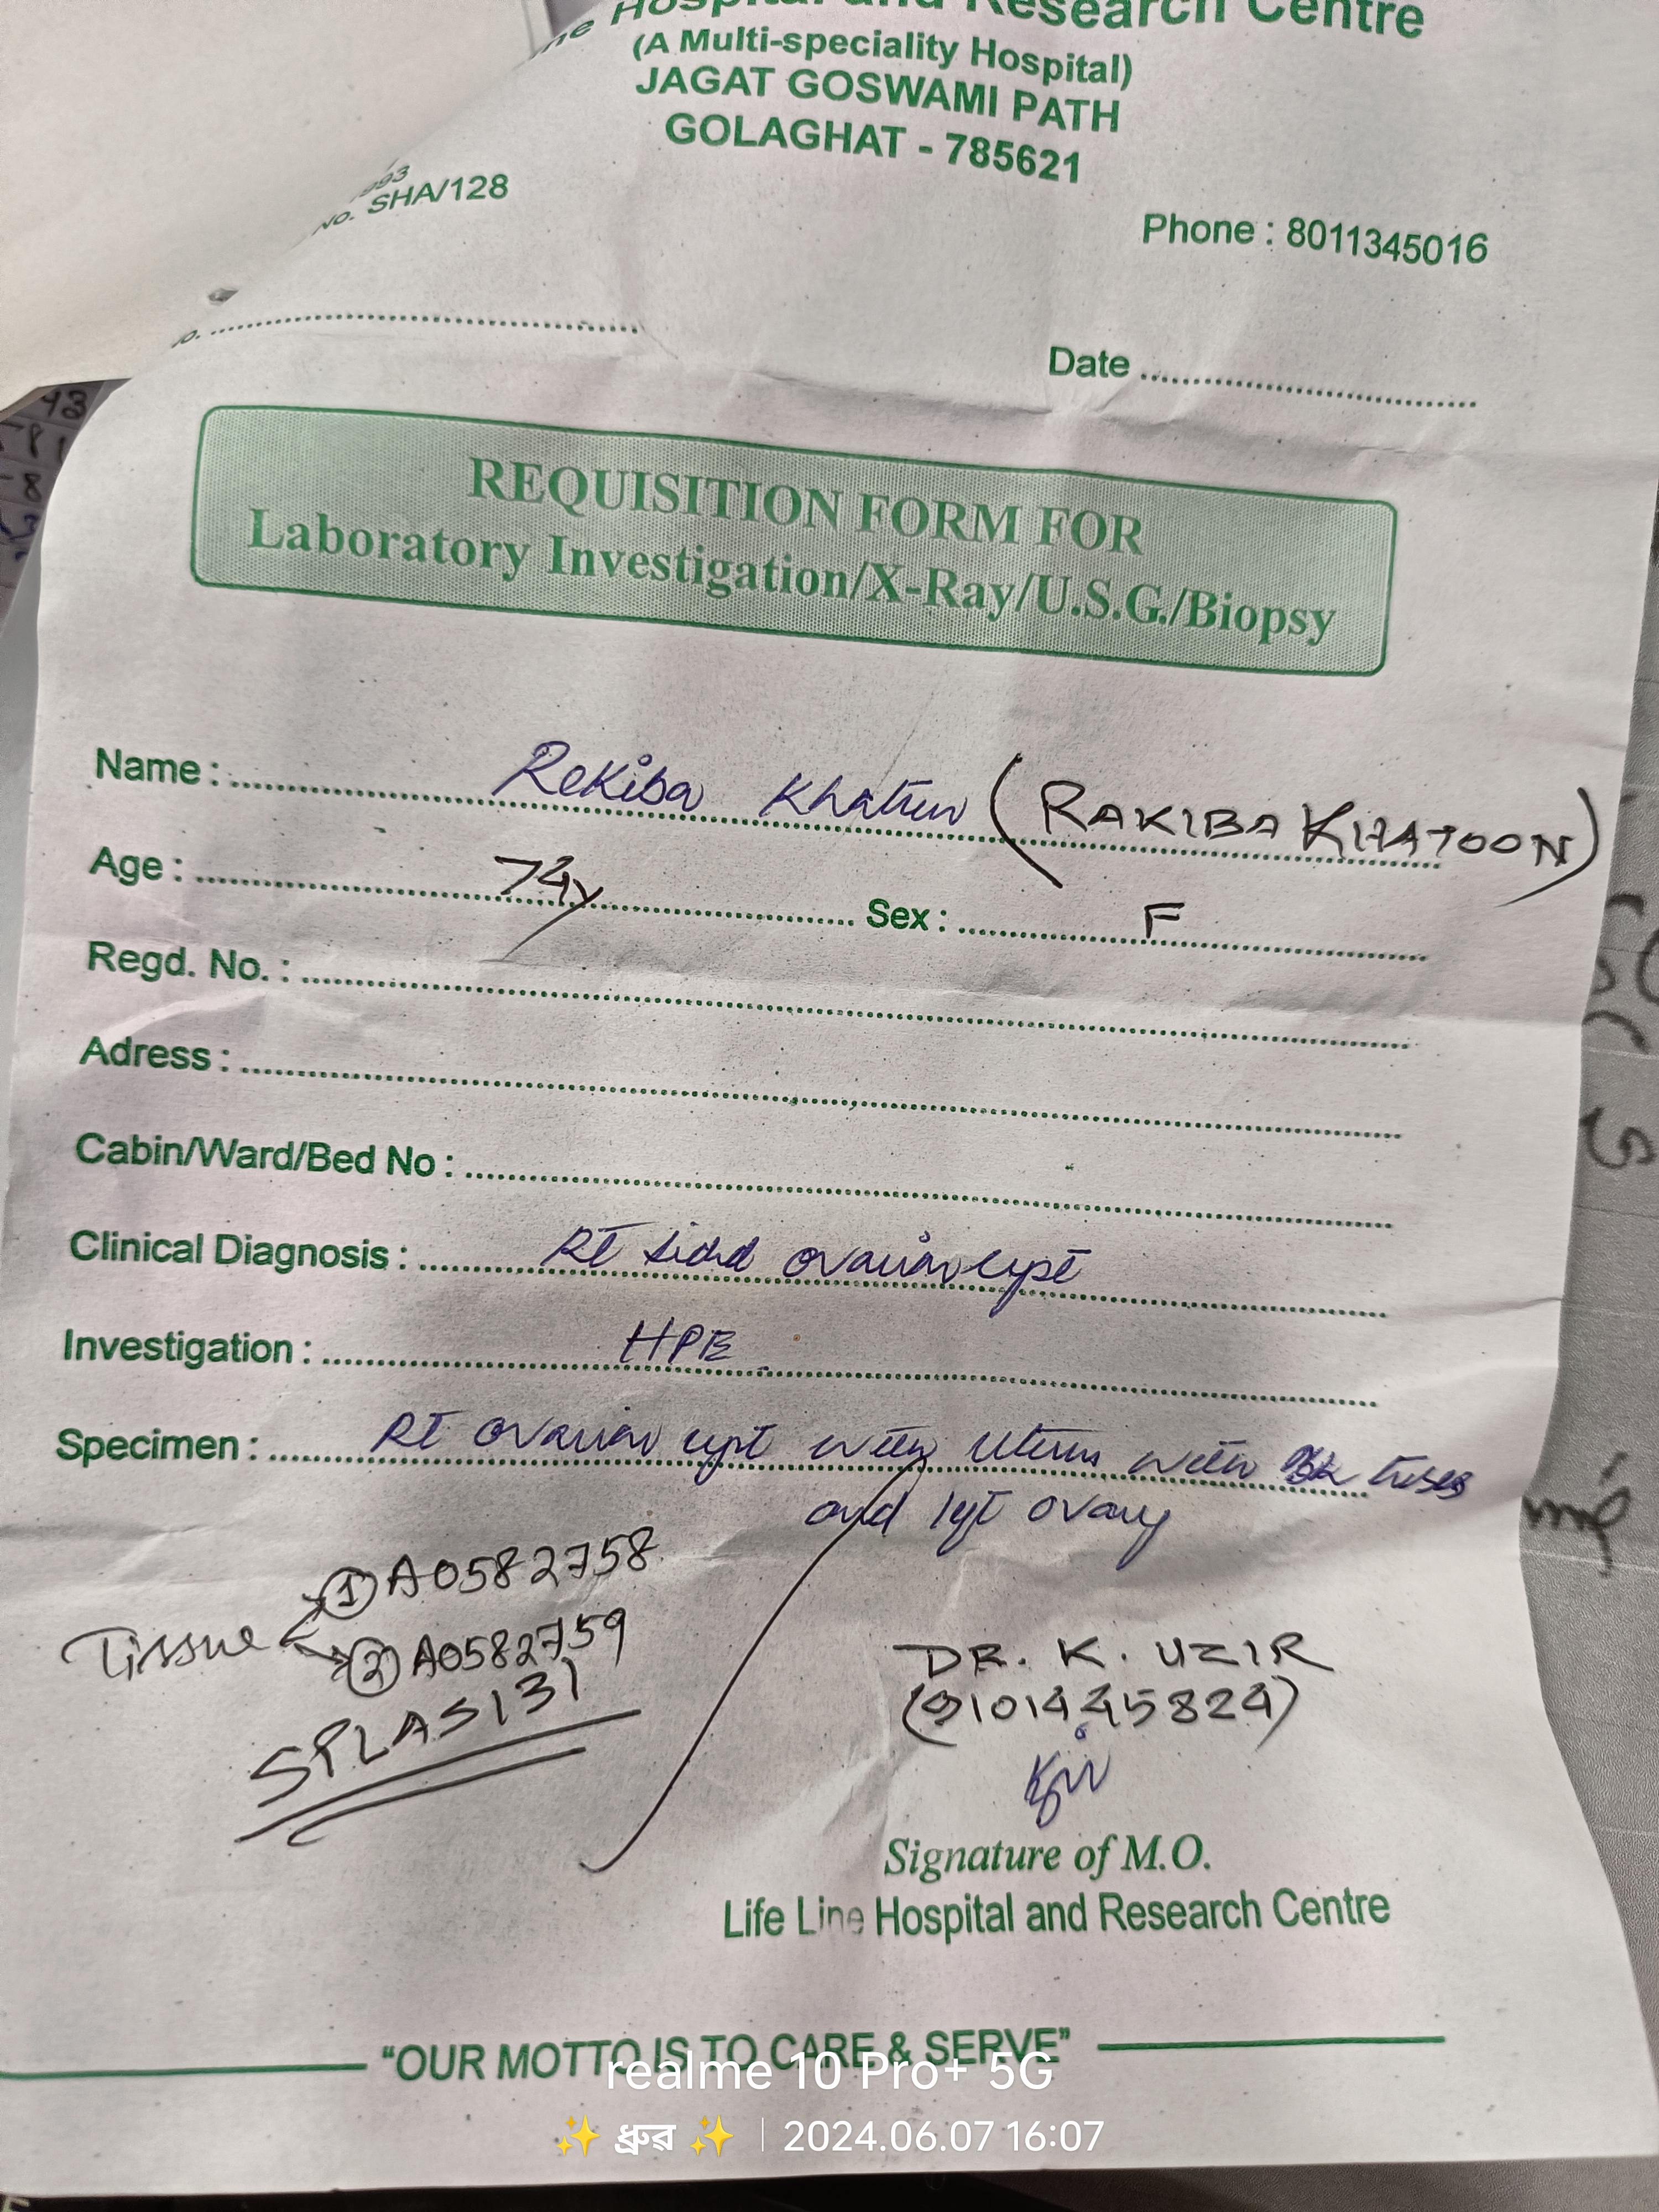 Hospital and Research Centre
(A Multi-speciality Hospital)
JAGAT GOSWAMI PATH
GOLAGHAT - 785621
No. SHA/128
Phone : 8011345016
Date
REQUISITION FORM FOR
Laboratory Investigation/X-Ray/U.S.G./Biopsy
Name : Rekiba Khatun (RAKIBA KHATOON)
Age : 74y Sex : F
Regd. No. :
Adress :
Cabin/Ward/Bed No :
Clinical Diagnosis : Rt sided ovarian cyst
Investigation : HPE
Specimen : Rt ovarian cyst with uterus with tubes
and lyt ovary
Tissue ① A0582758
② A0582759
SPLAS131
DR. K. UZIR
(9101445824)
Signature of M.O.
Life Line Hospital and Research Centre
“OUR MOTTO IS TO CARE & SERVE”
realme 10 Pro+ 5G
✨ ধ্ৰুৱ ✨ | 2024.06.07 16:07